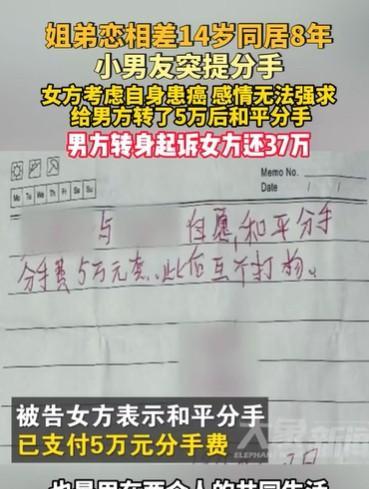 姐弟恋相差14岁同居8年
小男友突提分手
女方考虑自身患癌 感情无法强求
给男方转了5万后和平分手
男方转身起诉女方还37万
Memo No.
Mo Tu We Th Fr Sa Su
Date / /
与 自愿,和平分手
分手费5万元 此后互不打扰。
日
被告女方表示和平分手
已支付5万元分手费
大象新闻
也是用在两个人的共同生活